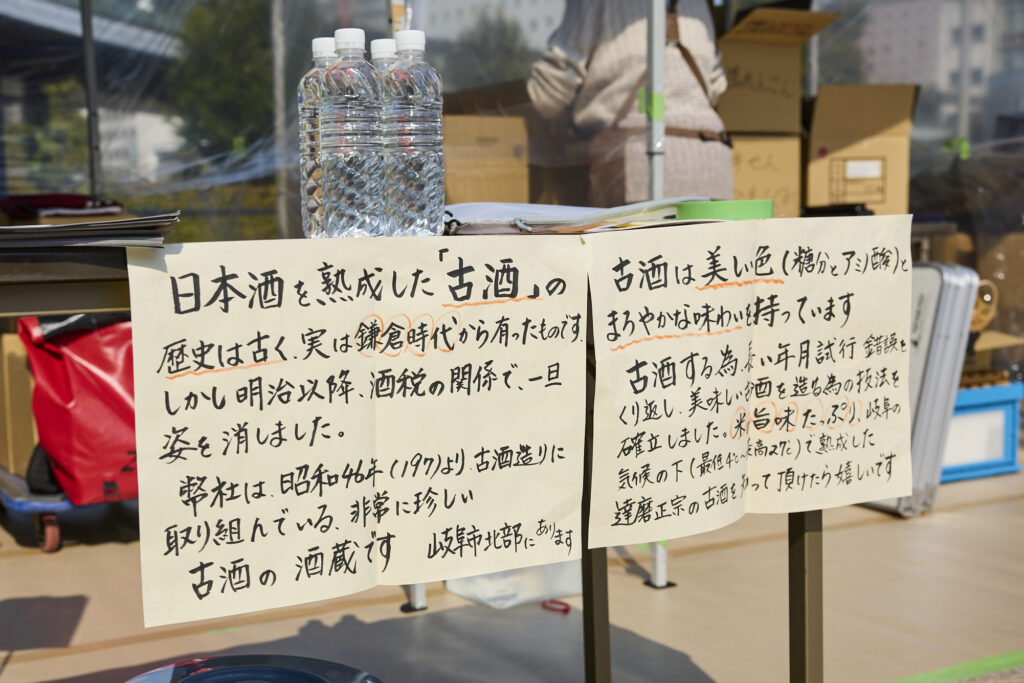 日本酒を熟成した「古酒」の
歴史は古く、実は鎌倉時代から有ったものです、
しかし明治以降、酒税の関係で、一旦
姿を消しました。
弊社は、昭和46年(1971)より、古酒造りに
取り組んでいる、非常に珍しい
古酒の酒蔵です 岐阜市北部にあります
古酒は美しい色(糖分とアミノ酸)と
まろやかな味わいを持っています
古酒する為、長い年月試行錯誤を
くり返し、美味しい酒を造る為の技法を
確立しました。米旨味たっぷり、岐阜の
気候の下(最低4℃〜最高27℃)で熟成した
達磨正宗の古酒を って頂けたら嬉しいです